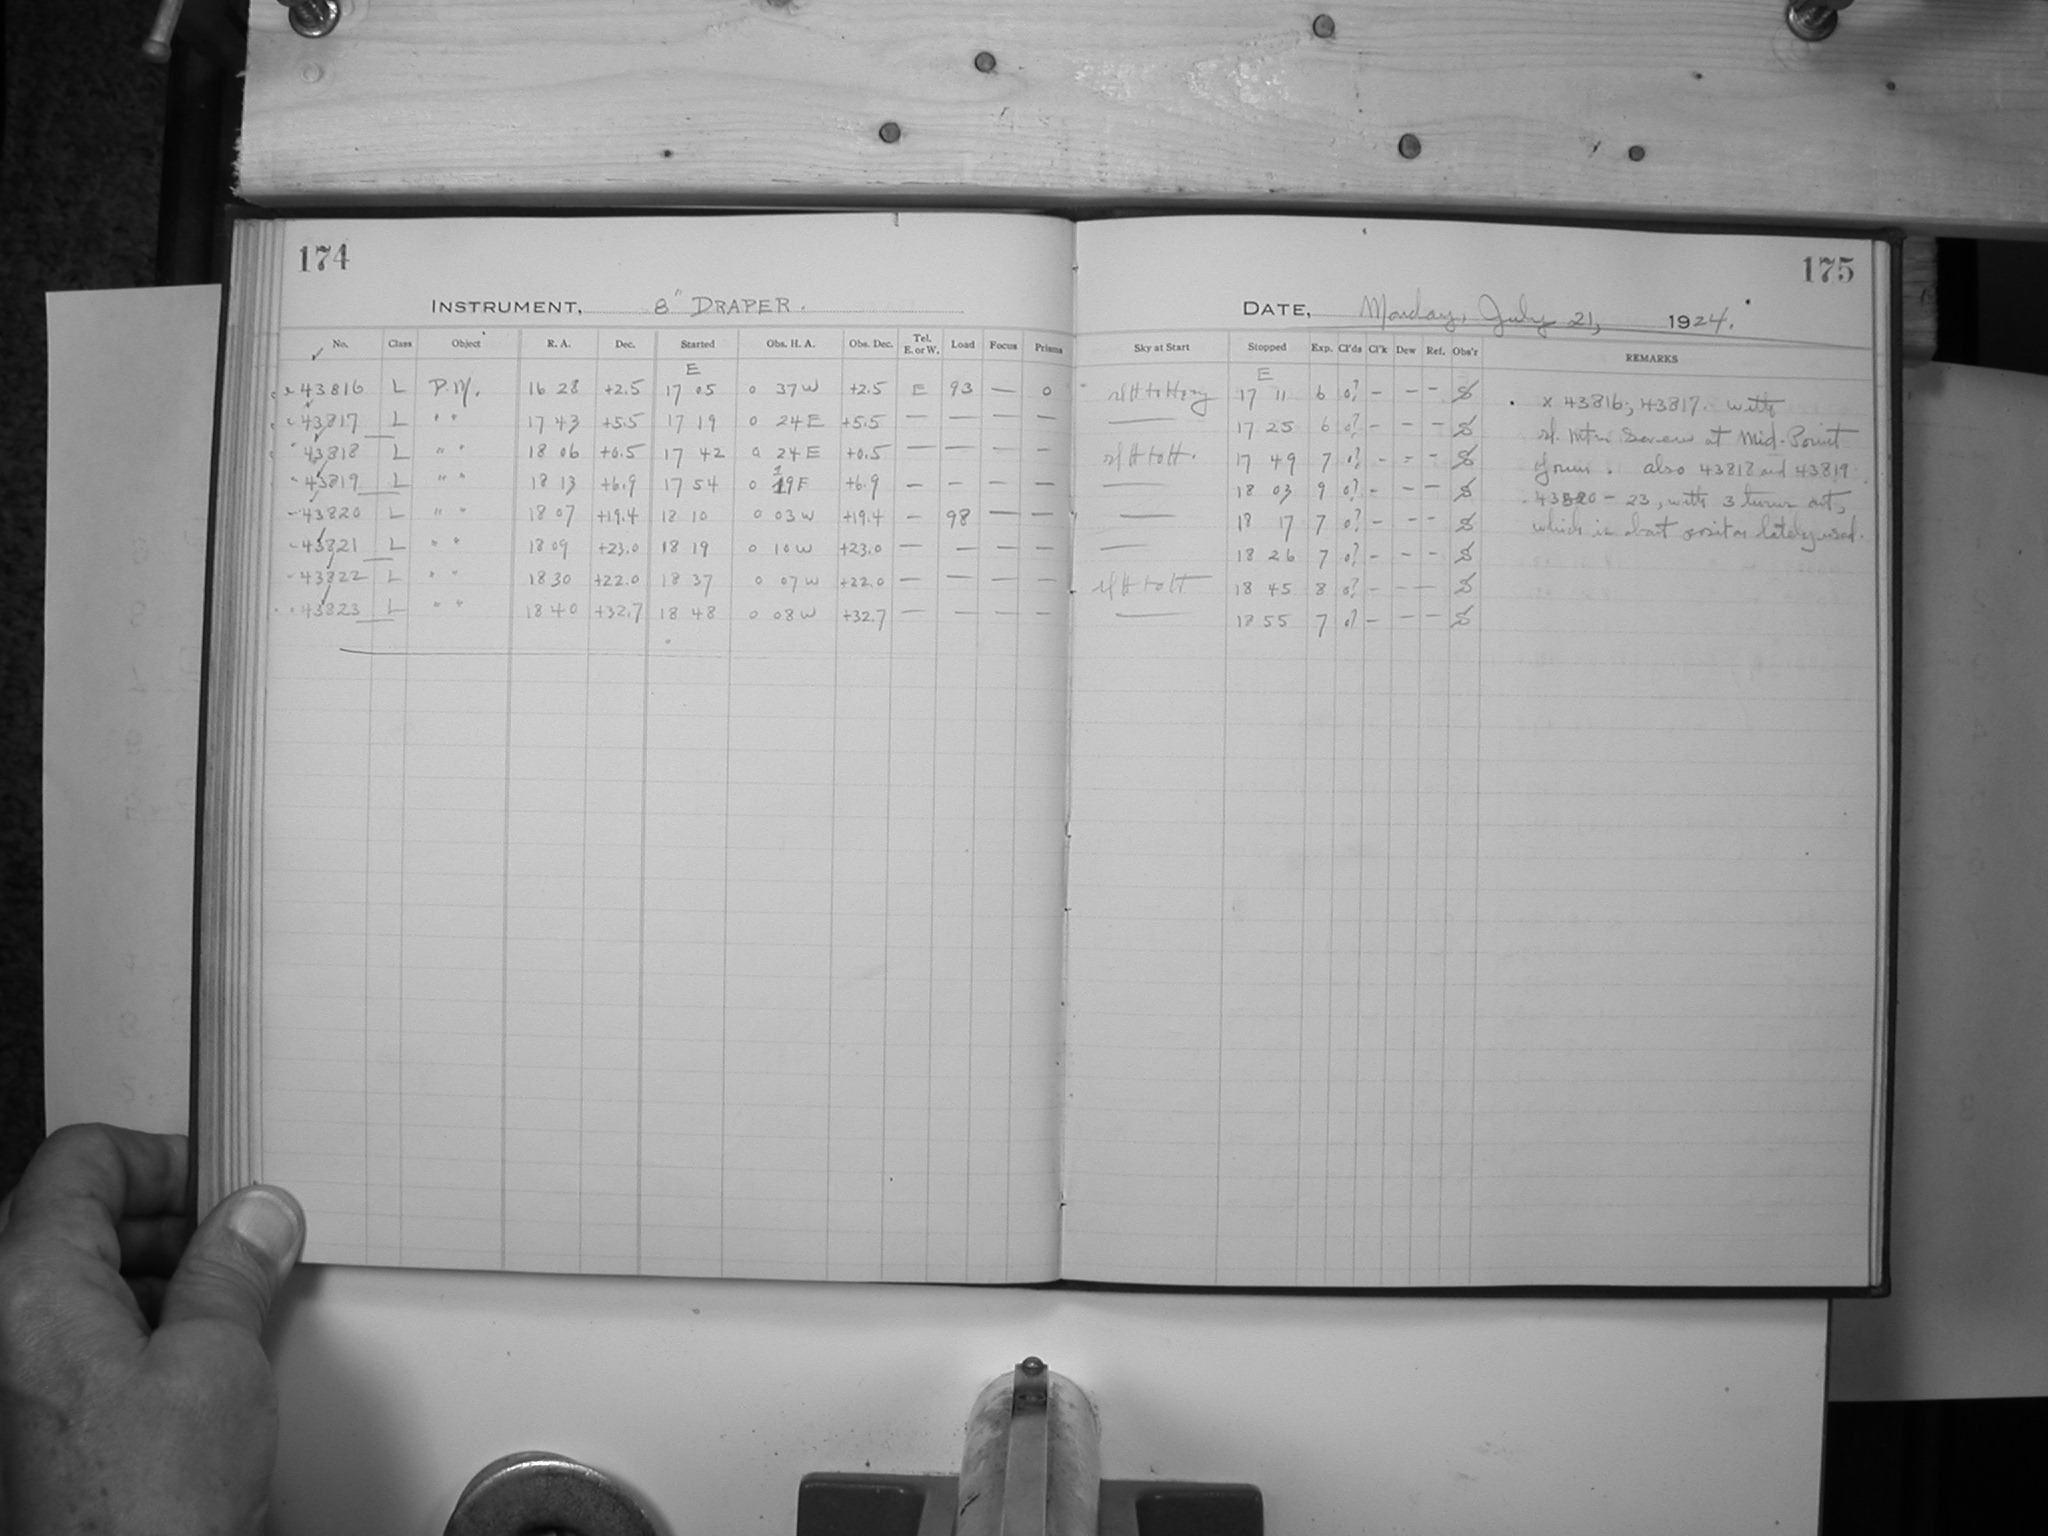 174
INSTRUMENT, 8" DRAPER.
No. Class Object R. A. Dec. Started Obs. H. A. Obs. Dec. Tel. E. or W. Load Focus Prisms
E
43816 L P.M. 16 28 +2.5 17 05 0 37 W +2.5 E 93 — 0
43817 L " " 17 43 +5.5 17 19 0 24 E +5.5 — — — —
43818 L " " 18 06 +0.5 17 42 0 24 E +0.5 — — — —
43819 L " " 18 13 +6.9 17 54 0 19 E +6.9 — — — —
43820 L " " 18 07 +19.4 18 10 0 03 W +19.4 — 98 — —
43821 L " " 18 09 +23.0 18 19 0 10 W +23.0 — — — —
43822 L " " 18 30 +22.0 18 37 0 07 W +22.0 — — — —
43823 L " " 18 40 +32.7 18 48 0 08 W +32.7 — — — —
175
DATE, Monday, July 21, 1924.
Sky at Start Stopped Exp. Cl'ds Cl'k Dew Ref. Obs'r REMARKS
E
17 11 6 0? — — —
17 25 6 0? — — —
17 49 7 0? — — —
18 03 9 0? — — —
18 17 7 0? — — —
18 26 7 0? — — —
18 45 8 0? — — —
18 55 7 0? — — —
x 43816, 43817. with
Screw at Mid-Point
also 43818 and 43819
43820 - 23, with 3 turns out,
which is about position lately used.